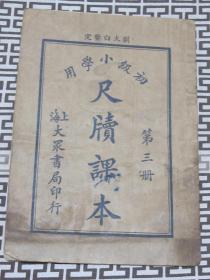 劉大白鑒定
初級小學用
尺牘課本
第三册
上海大眾書局印行